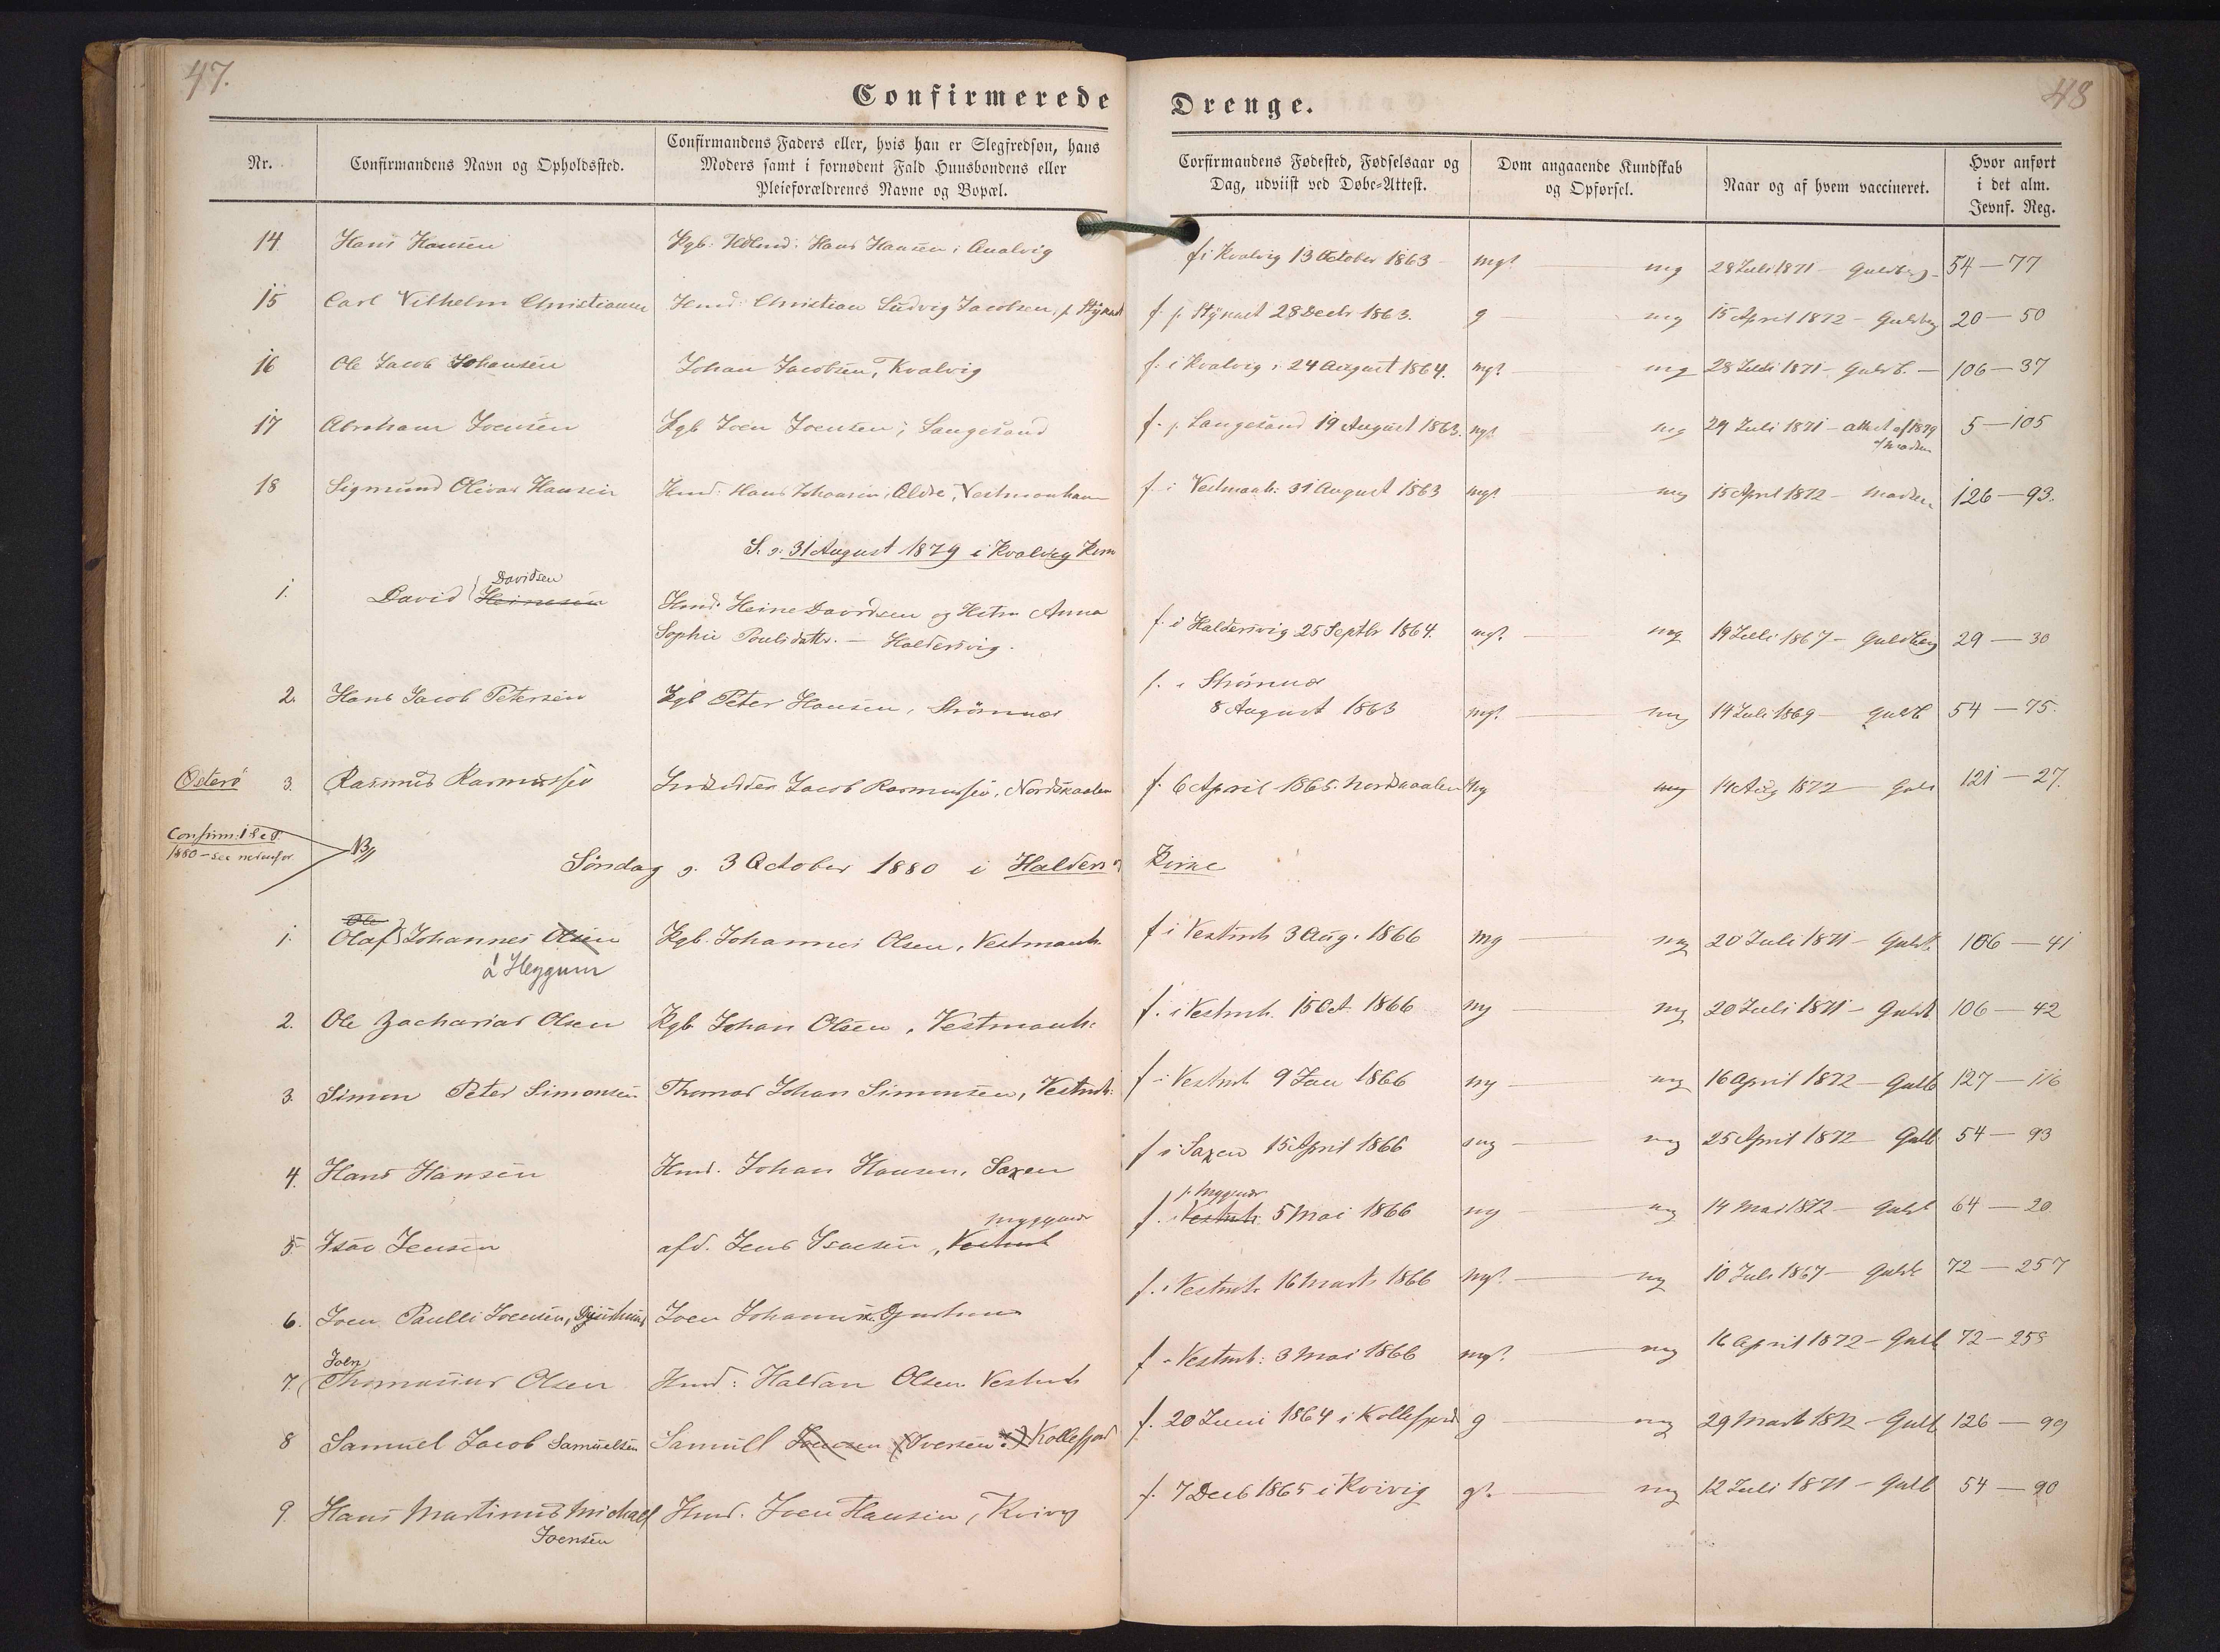 47.
48
Confirmerede Drenge.
Nr.
Confirmandens Navn og Opholdssted.
Confirmandens Faders eller, hvis han er Slegfredsøn, hans
Moders samt i fornødent Fald Huusbondens eller
Pleieforældrenes Navne og Bopæl.
Corfirmandens Fødested, Fødselsaar og
Dag, udviist ved Døbe-Attest.
Dom angaaende Kundskab
og Opførsel.
Naar og af hvem vaccineret.
Hvor anført
i det alm.
Jevnf. Reg.
14 Hans Hansen Kgb. Hans Hansen, Qualvig f i Kvalvig 13 October 1863 mg? mg 28 Juli 1871 - Guldberg - 54 - 77
15 Carl Vilhelm Christiansen Hmd: Christian Ludvig Jacobsen, f. p. 28 Decbr 1863. g mg 15 April 1872 - Guldbg 20 - 50
16 Ole Jacob Johansen Johan Jacobsen, Kvalvig f. i Kvalvig, 24 August 1864. mg? mg 28 Juli 1871 - Guldb. - 106 - 37
17 Abraham Joensen Kgb Joen Joensen, Langesand f. p. Langesand 19 August 1863. mg? mg 29 Juli 1871 - attest af 1879 5 - 105
af Madsen
18 Sigmund Olivar Hansen Hmd: Hans Johansen, Ældre, Vestmanhavn f. i Vestmanh: 31 August 1863 mg? mg 15 April 1872 - Madsen 126 - 93.
S. d. 31 August 1879 i Kvalvig Kirke
1. David Heinesen Davidsen Hmd. Heine Davidsen og Hstr Anna
Sophie Poulsdattr. - Haldersvig.
f. i Haldersvig 25 Septbr 1864. mg? mg 19 Juli 1867 - Guldberg 29 - 30
2. Hans Jacob Petersen Kgb Peter Hansen, Strömnæs f. i Strömnæs
8 August 1863 mg? mg 14 Juli 1869 - Guldb 54 - 75.
Østerö 3. Rasmus Rasmussen Jacob Rasmussen, Nordskaalen f. 6 April 1865. Nordskaalen mg mg 14 Aug 1872 - Guld 121 - 27.
Confirm: 1 Sept.
1880 - see nedenfor
NB
Söndag d. 3 October 1880 i Haldersv Kirke
1. Ole Olaf Johannes Olsen Kgb. Johannes Olsen, Vestmanh. f i Vestmh 3 Aug. 1866 mg mg 20 Juli 1871 - Guldb. 106 - 41
á Heygum
2. Ole Zacharias Olsen Kgb Johan Olsen, Vestmanh: f. i Vestmh. 15 Oct 1866 mg mg 20 Juli 1871 - Guldb 106 - 42
3. Simon Peter Simonsen Thomas Johan Simonsen, Vestmh: f i Vestmh 9 Jan 1866 mg mg 16 April 1872 - Guldb 127 - 116
4. Hans Hansen Hmd. Johan Hansen, Saxen f i Saxen 15 April 1866 mg mg 25 April 1872 - Guldb 54 - 93
5 Isac Jensen afd. Jens Isacsen, Vestmh Myggenæs f. i Vestmh: p. Myggenæs 5 Mai 1866 mg mg 14 Mai 1872 - Guldb 64 - 20
6. Joen Paulli Joensen, Joen f. i Vestmh. 16 Marts 1866 mg? mg 10 Juli 1867 - Guldb 72 - 257
7. Joen Thomasius Olsen Hmd: Haldan Olsen Vestmh f i Vestmh: 3 Mai 1866 mg? mg 16 April 1872 - Guldb 72 - 258
8 Samuel Jacob Samuelsen Samuel Joensen (Iversen?) Kollefjord f. 20 Juni 1864 i Kollefjord g mg 29 Marts 1872 - Guldb 126 - 99
9. Hans Martinus Michael Hmd. Joen Hansen, Kvivig f. 7 Decb 1865 i Kvivig g?. mg 12 Juli 1871 - Guldb 54 - 90
Joensen